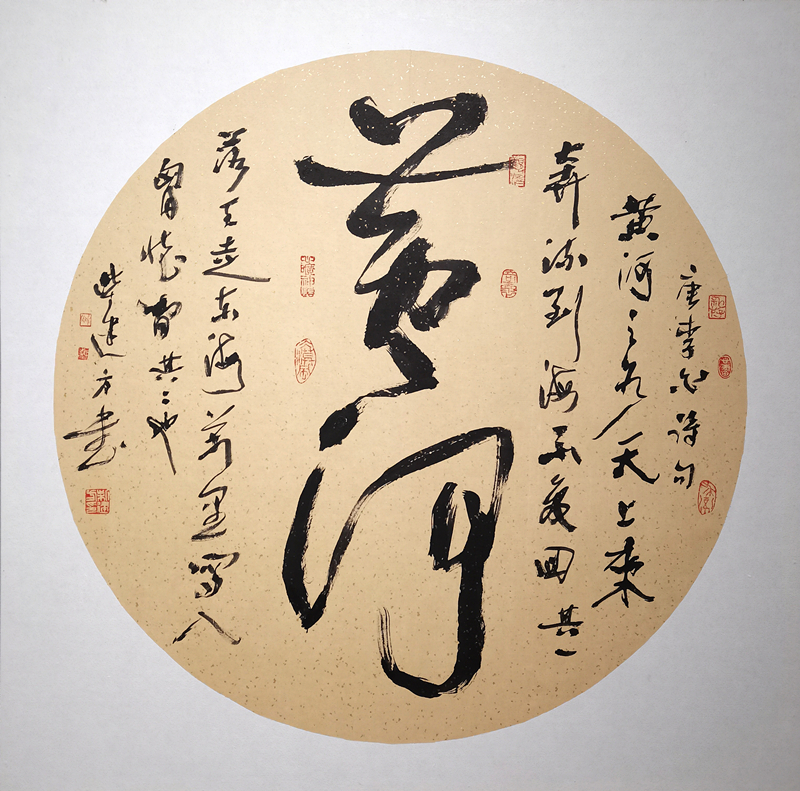 唐李白诗句
黄河之水天上来
奔流到海不复回其一
黄河
落天走东海萬里写入
胸怀间其二也
建方书